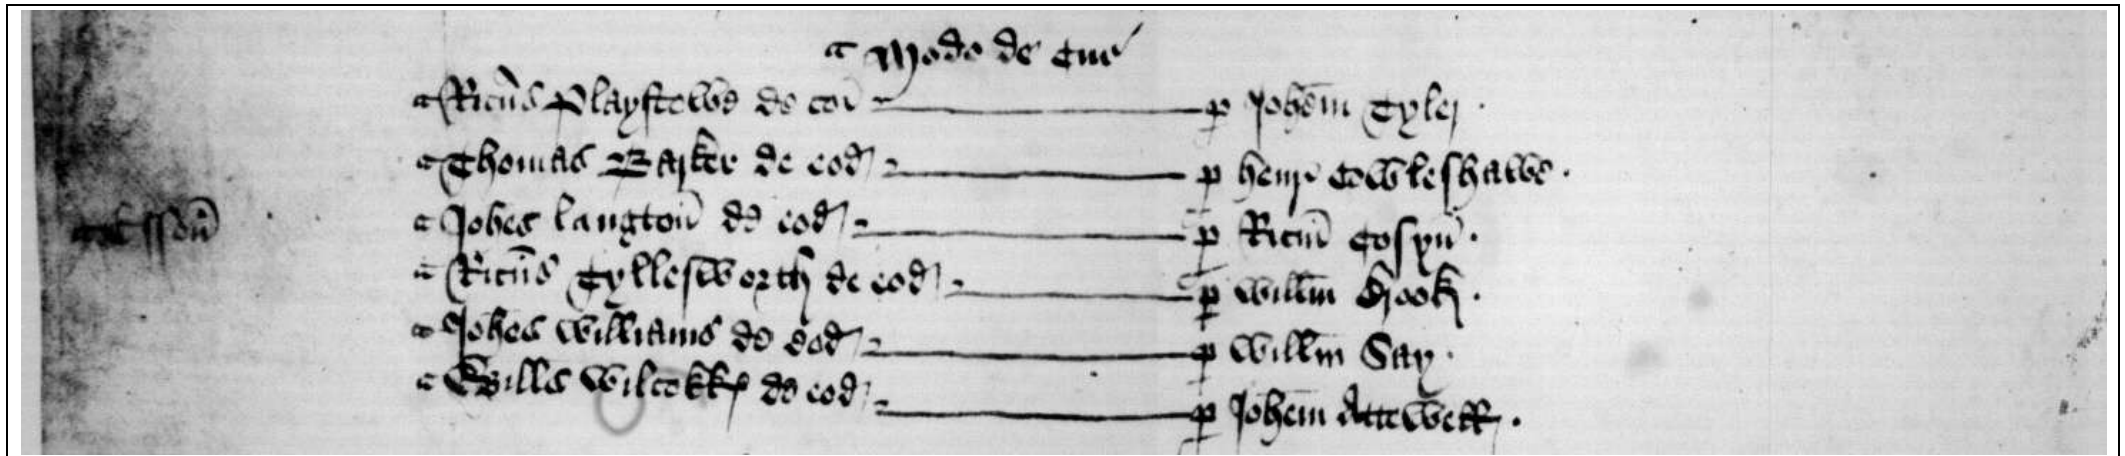 Modo de Cur'
Ricūs Playstowe de com̄ p Johēm Tyler
Thomas Barker de eod p henr' Cowleshawe
Essoñ
Johēs langton̄ de eod p Ricm̄ Cosyn̄
Ricūs Tyllesworth de eod p Willm̄ Hook
Johēs Williams de eod p Willm̄ Say
Wills Wilcokk de eod p Johēm Attewell